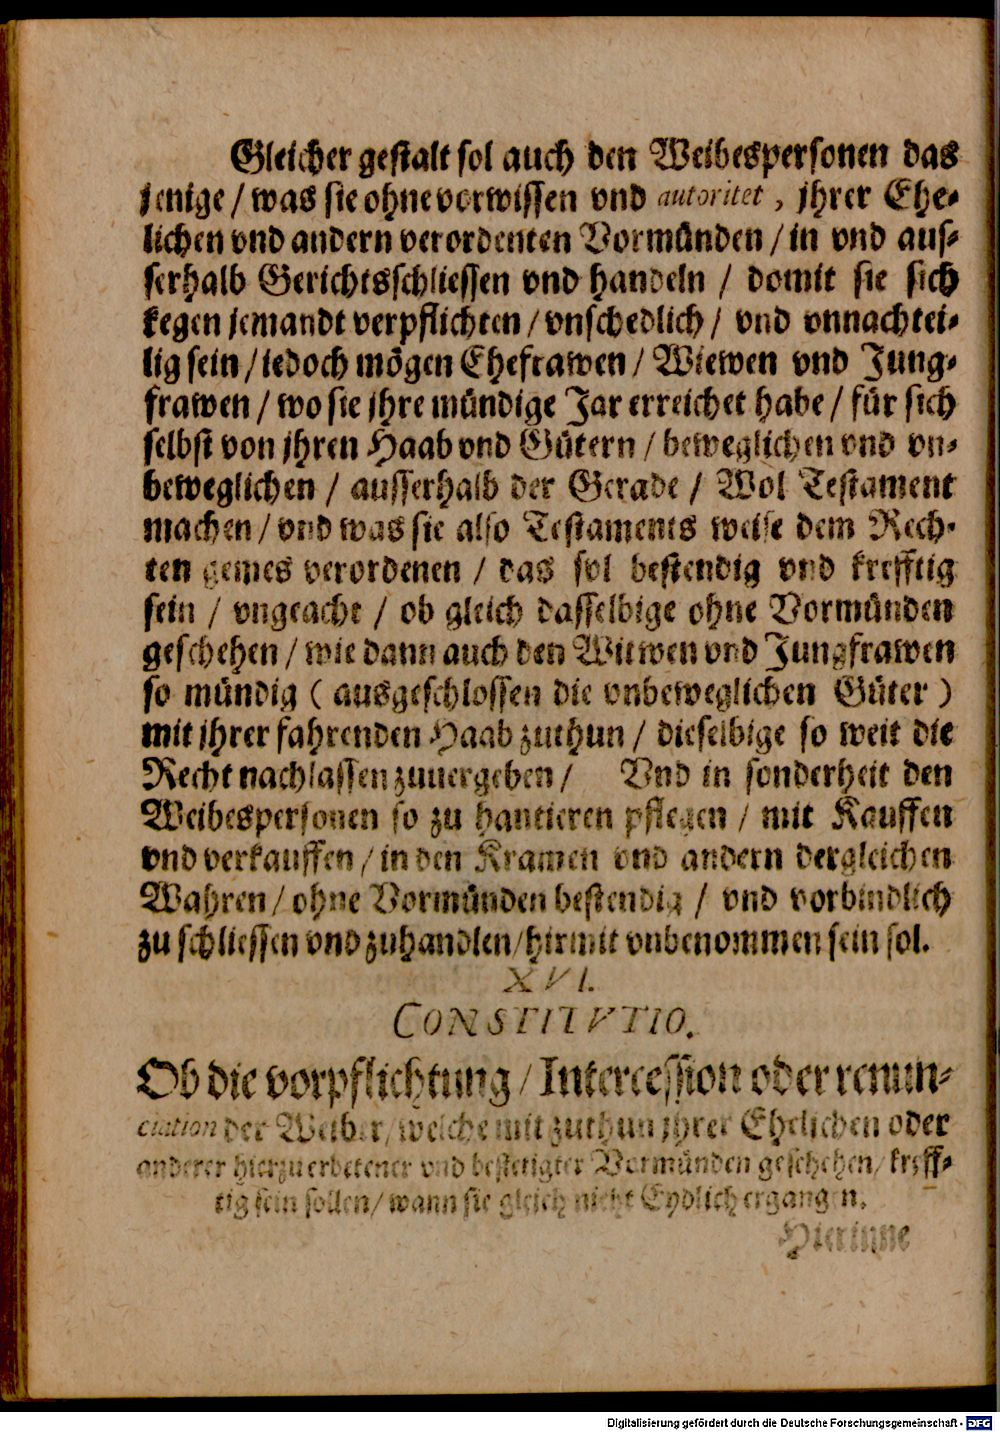 Gleicher gestalt sol auch den Weibespersonen das
jenige / was sie ohne vorwissen vnd autoritet, jhrer Ehe-
lichen vnd andern verordenten Vormünden / in vnd aus-
serhalb Gerichtsschliessen vnd handeln / domit sie sich
kegen jemandt verpflichten / vnschedlich / vnd vnnachtei-
lig sein / iedoch mögen Ehefrawen / Wiewen vnd Jung-
frawen / wo sie jhre mündige Jar erreichet habe / für sich
selbst von jhren Haab vnd Gütern / beweglichen vnd vn-
beweglichen / ausserhalb der Gerade / Wol Testament
machen / vnd was sie also Testaments weise dem Rech-
ten gemes verordenen / das sol bestendig vnd krefftig
sein / vngeacht / ob gleich dasselbige ohne Vormünden
geschehen / wie dann auch den Witwen vnd Jungfrawen
so mündig ( ausgeschlossen die vnbeweglichen Güter )
mit jhrer fahrenden Haab zuthun / dieselbige so weit die
Recht nachlassen zuuergeben / Vnd in sonderheit den
Weibespersonen so zu hantieren pflegen / mit Kauffen
vnd verkauffen / in den Kramen vnd andern dergleichen
Wahren / ohne Vormünden bestendig / vnd vorbindlich
zu schliessen vnd zuhandlen / hirmit vnbenommen sein sol.
XVI.
CONSTITVTIO.
Ob die vorpflichtung / Intercession oder renun-
ciation der Weiber / welche mit zuthun jhrer Ehelichen oder
anderer hierzu erbetener vnd bestetigter Vormünden geschehen / kreff-
tig sein sollen / wann sie gleich nicht Eydlich ergangen.
Hierinne
Digitalisierung gefördert durch die Deutsche Forschungsgemeinschaft - DFG